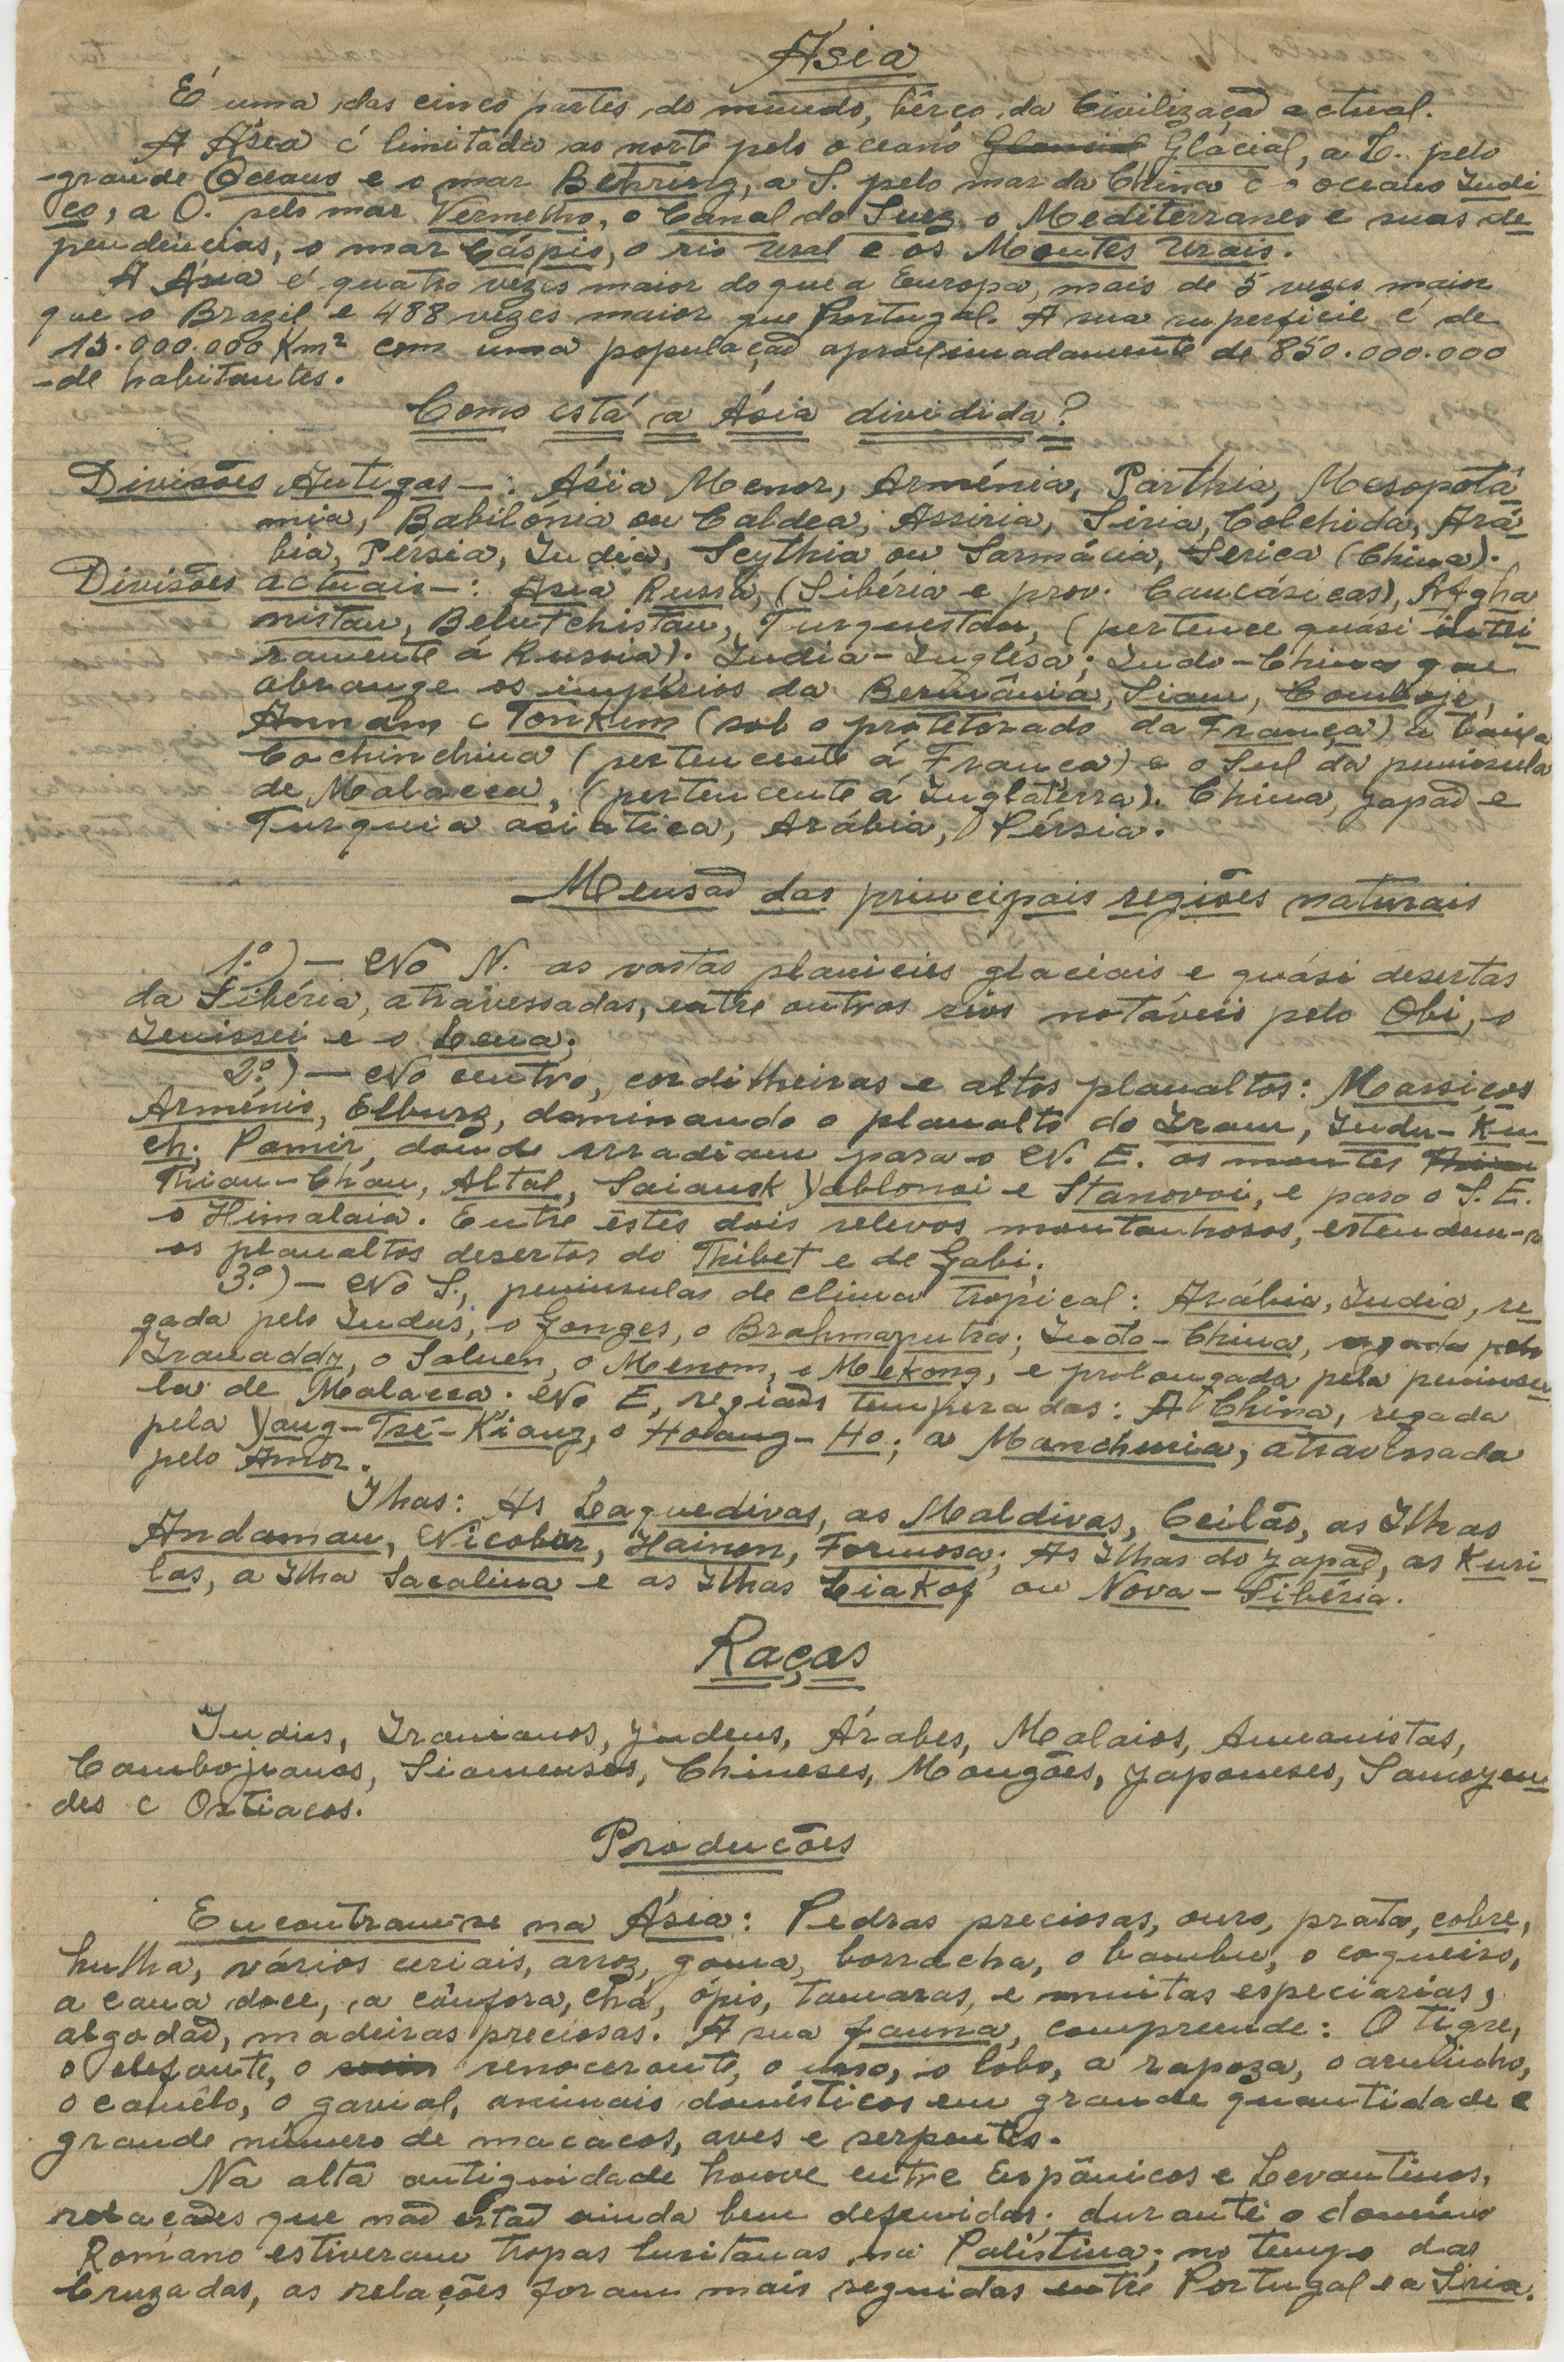 Asia
É uma das cinco partes do mundo, bêrço da Civilização actual.
A Ásia é limitada ao norte pelo oceano Glacial, a L. pelo
grande Oceano e o mar Behring, a S. pelo mar da China e o oceano Indi
co, a O. pelo mar Vermelho, o Canal do Suez o Mediterraneo e suas de
pendências, o mar Cáspio, o rio Ural e os Montes Urais.
A Ásia é quatro vezes maior do que a Europa, mais de 5 vezes maior
que o Brazil e 488 vezes maior que Portugal. A sua superficie é de
45.000.000 Km² com uma população aproximadamente de 850.000.000
de habitantes.
Como está a Ásia dividida?
Divisões Antigas—: Ásia Menor, Arménia, Parthia, Mesopotâ
mia, Babilónia ou Caldea, Assiria, Siria, Colchida, Ará
bia, Persia, India, Scythia ou Sarmácia, Serica (China).
Divisões actuais—: Asia Russa, (Sibéria e prov. Caucásicas), Afgha
nistan, Belutchistan, Turquestan, (pertence quasi intei
ramente á Russia). India-Inglêsa; Indo-China que
abrange os impérios da Bermânia, Siam, Comboje,
Annam e Tonkim (sob o protetorado da França) a baixa
Cochinchina (pertencente á França) e o Sul da peninsula
de Malacca, (pertencente á Inglaterra). China, Japão e
Turquia asiatica, Arábia, Pérsia.
Mensão das principais regiões naturais
1.º)— No N. as vastas planicies glaciais e quási desertas
da Sibéria, atravessadas, entre outros rios notáveis pelo Obi, o
Ienissei e o Lena;
2.º)— No centro, cordilheiras e altos planaltos: Massiços
Arménio, Elburz, dominando o planalto do Iram, Indu-Ku
ch; Pamir, donde irradiam para o N. E. os montes
Thian-Chan, Altai, Saiansk Yablonoi e Stanovoi, e para o S. E.
o Himalaia. Entre êstes dois relevos montanhosos, estendem-se
os planaltos desertos do Thibet e de Gobi;
3.º)— No S., peninsulas de clima tropical: Arábia, India, re
gada pelo Indus, o Ganges, o Brahmaputra; Indo-China, regada pelo
Irauaddy, o Saluen, o Menom, o Mekong, e prolongada pela peninsu
la de Malacca. No E, regiões temperadas: A China, regada
pela Yang-Tsé-Kiang, o Hoang-Ho; a Manchuria, atravessada
pelo Amor.
Ilhas: As Laquedivas, as Maldivas, Ceilão, as Ilhas
Andaman, Nicobar, Hainan, Formosa; As Ilhas do Japão, as Kuri
las, a Ilha Sacalina e as Ilhas Liakof ou Nova-Sibéria.
Raças
Indius, Iranianos, Judeus, Árabes, Malaios, Anamistas,
Cambojianos, Siamenses, Chineses, Mongões, Japoneses, Samoyen
des e Ostiacos.
Produções
Encontram-se na Ásia: Pedras preciosas, ouro, prata, cobre,
hulha, vários ceriais, arroz, goma, borracha, o bambu, o coqueiro,
a cana doce, a cânfora, chá, ópio, tamaras, e muitas especiarias,
algodão, madeiras preciosas. A sua fauna, compreende: O tigre,
o elefante, o renoceronte, o urso, o lobo, a rapoza, o arminho,
o camêlo, o gavial, animais domésticos em grande quantidade e
grande número de macacos, aves e serpentes.
Na alta antiguidade houve entre Espânicos e Levantinos,
relações que não estão ainda bem defenidas; durante o domínio
Romano estiveram tropas lusitanas na Palistina; no tempo das
Cruzadas, as relações foram mais seguidas entre Portugal e a Siria.